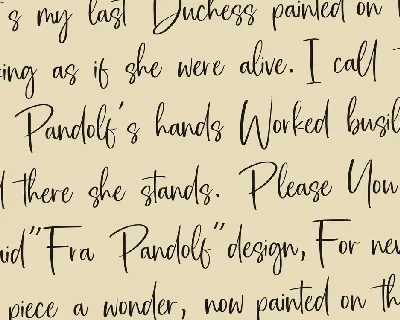 's my last Duchess painted on
king as if she were alive. I call
Pandolf's hands Worked busil
d there she stands. Please You
aid "Fra Pandolf" design, For nev
piece a wonder, now painted on th